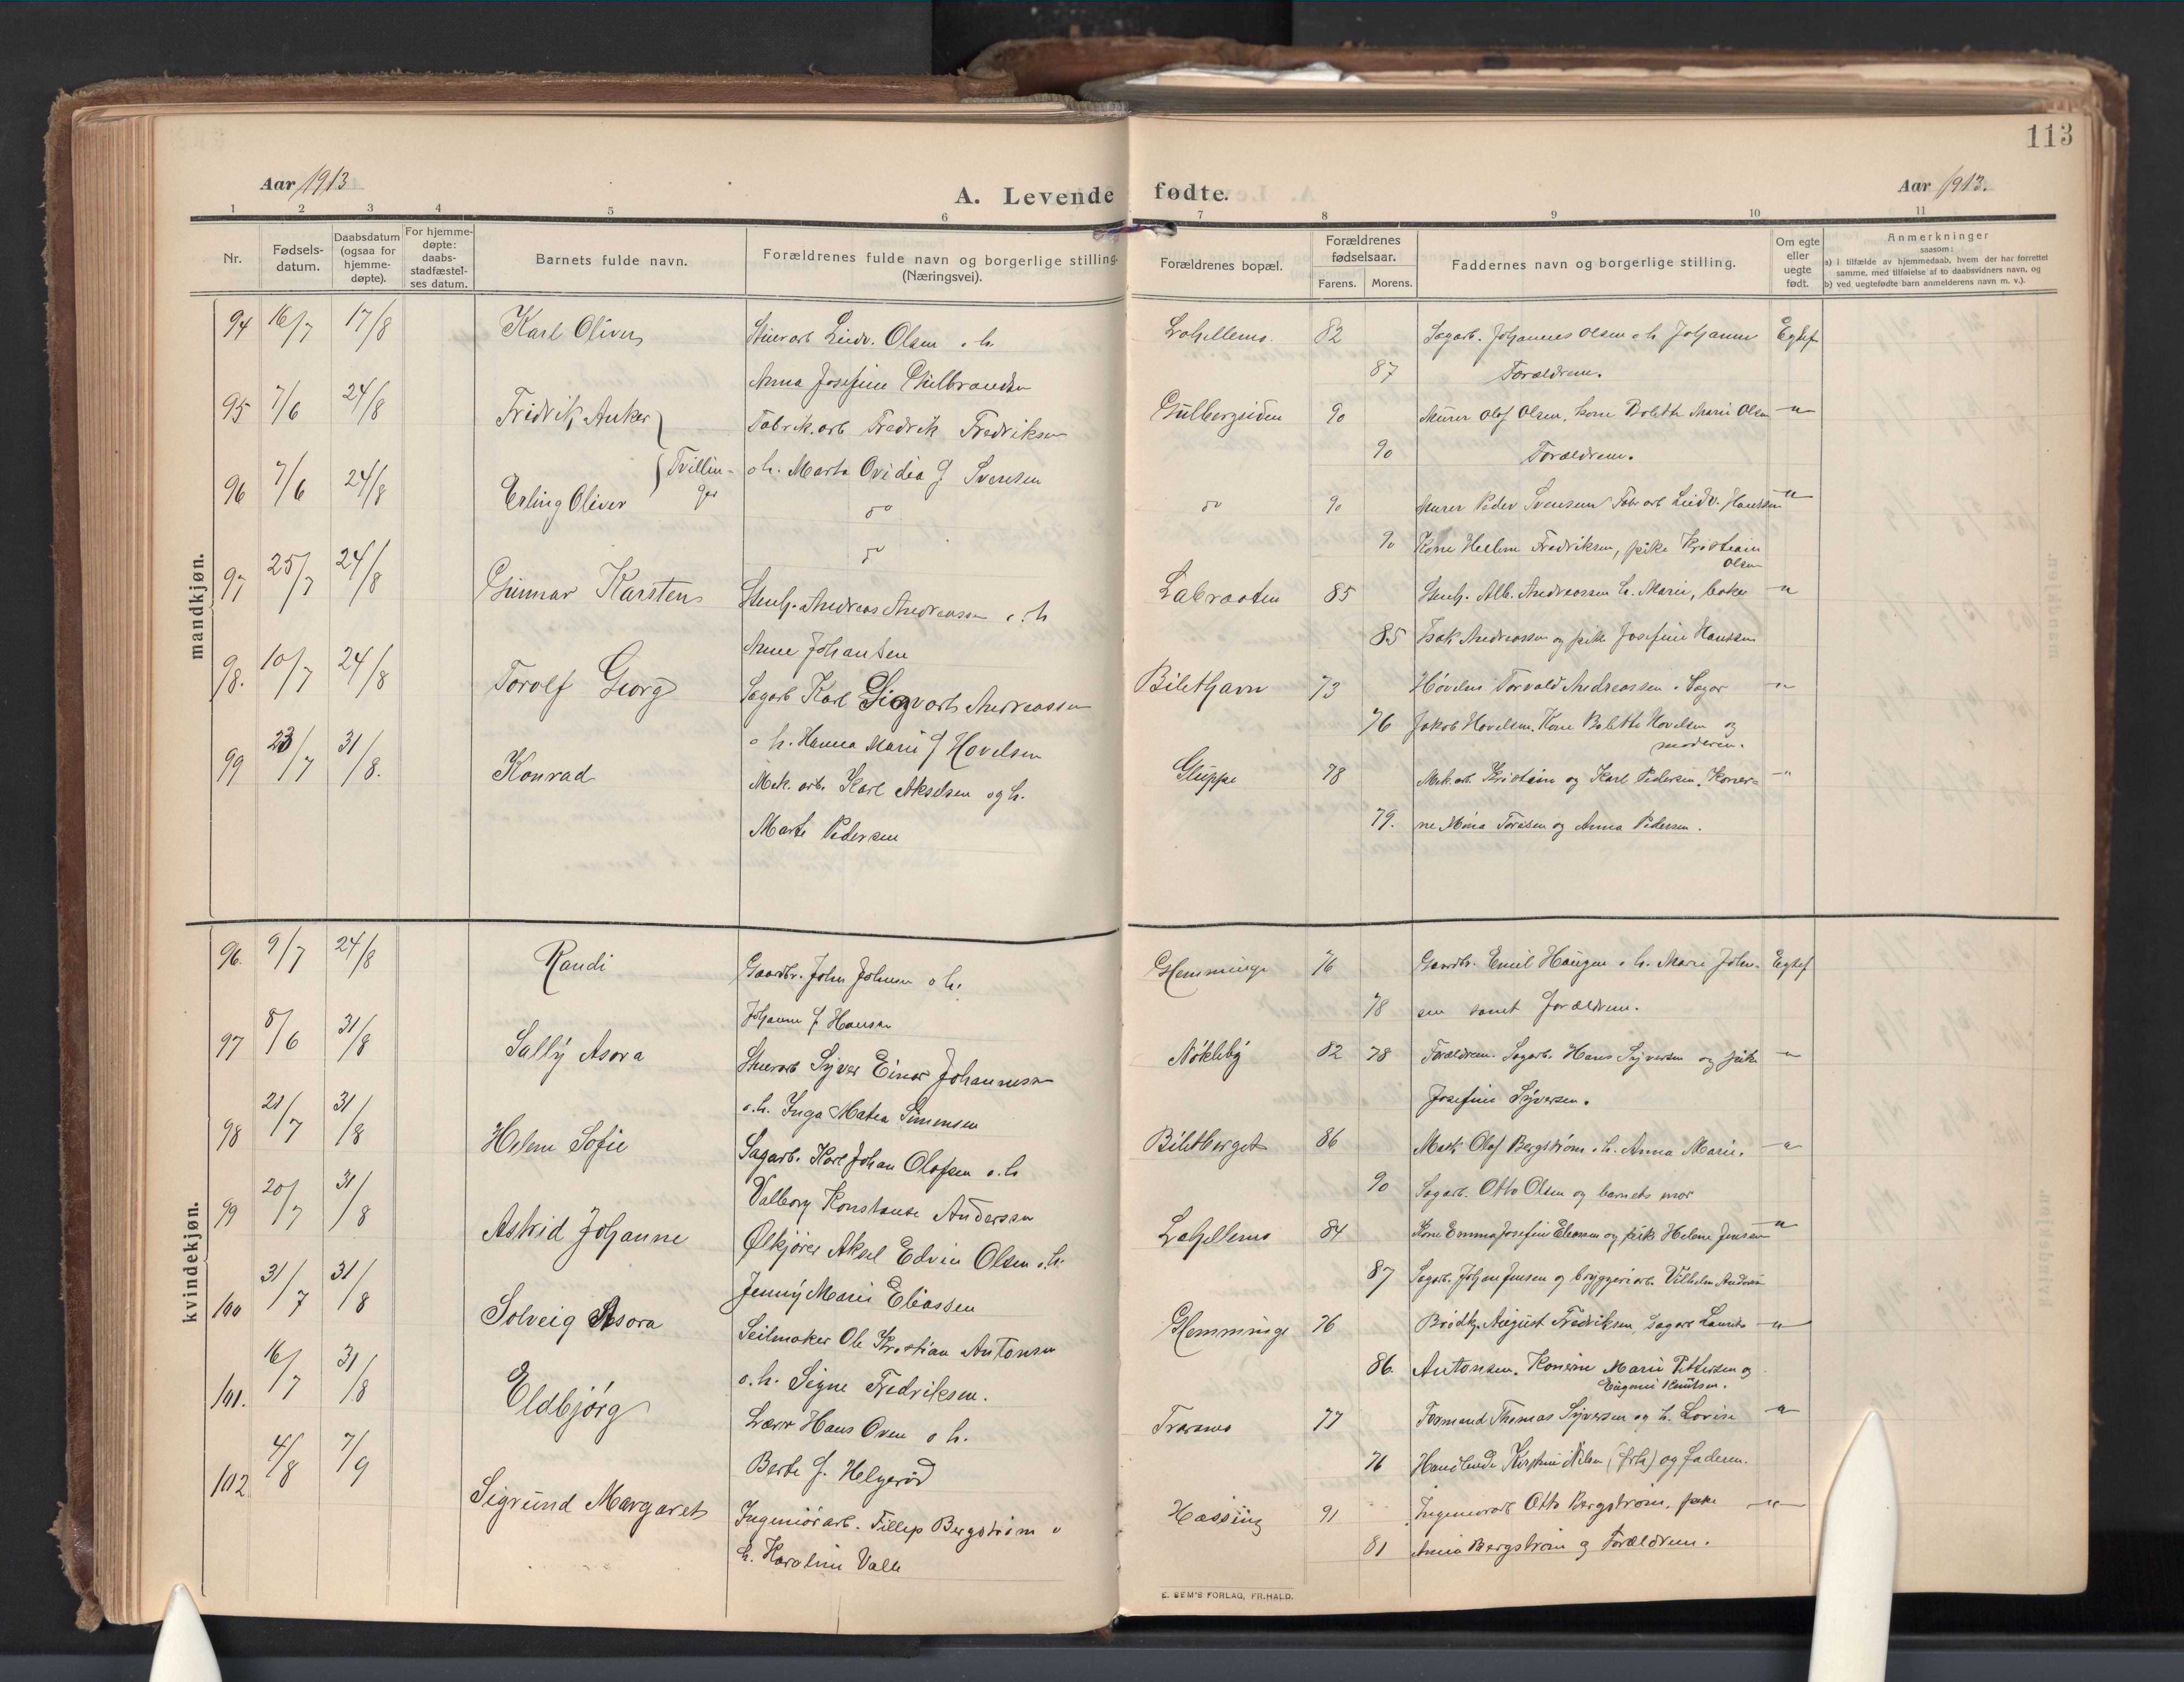 113
Aar 1913
A. Levende fødte.
Aar 1913.
1 2 3 4 5 6 7 8 9 10 11
Nr.
Fødsels-
datum.
Daabsdatum
(ogsaa for
hjemme-
døpte).
For hjemme-
døpte:
daabs-
stadfæstel-
ses datum.
Barnets fulde navn.
Forældrenes fulde navn og borgerlige stilling.
(Næringsvei).
Forældrenes bopæl.
Forældrenes
fødselsaar.
Farens. Morens.
Faddernes navn og borgerlige stilling.
Om egte
eller
uegte
født.
Anmerkninger
saasom:
a) i tilfælde av hjemmedaab, hvem der har forrettet
samme, med tilføielse af to daabsvidners navn, og
b) ved uegtefødte barn anmelderens navn m. v.).
mandkjøn.
94 16/7 17/8 Karl Oliver Stuerarb Ludv. Olsen o. h. Lahellemo. 82 Sagarb. Johannes Olsen o h. Johanne Egtef
Anna Josefine Gulbrandsen 87 Forældrene.
95 7/6 24/8 Fridrik Anker Fabrik.arb Fredrik Fredriksen Gulbergsiden 90 Murer Olof Olsen, kone Bolette Marie Olsen -"-
Tvillin-
ger
o h. Marta Ovidia f Svensen 90 Forældrene.
96 7/6 24/8 Erling Oliver do do 90 Murer Peder Svensen Fabr arb Ludv. Hansen -"-
do 90 Kone Helene Fredriksen, pike Kristian
Olsen
97 25/7 24/8 Gunnar Karsten Stenh. Andreas Andreassen o. h Labraaten 85 Stenh. Alb. Andreassen h. Marie, baker -"-
Anne Johansen 85 Isak Andreassen og pike Josefine Hansen
98. 10/7 24/8 Torolf Georg Sagarb Karl Sigvart Andreassen Bilethavn 73 Høvelm Torvald Andreassen. Sagar -"-
o h. Hanna Marie f Hovelsen 76 Jakob Hovelsen. Kone Bolette Hovelsen og
moderen.
99 23/7 31/8. Konrad Mek. arb. Karl Akselsen og h. Gluppe 78 Mek.arb Kristian og Karl Pedersen. Koner= -"-
Marte Pedersen 79. ne Mina Torisen og Anna Pedersen.
kvindekjøn.
96. 9/7 24/8 Randi Gaardbr. John Johnsen o h. Glemminge 76 Gaardbr. Emil Haugen o h. Marie John- Egtef
Johanne f Hansen 78 sen samt forældrene.
97 8/6 31/8 Sally Asora Stuerarb Syver Einar Johannesen Nökleby 82 78 Forældrene. Sagarb. Hans Syversen og pike -"-
o. h. Inga Matea Simensen Josefine Syversen.
98 21/7 31/8 Helene Sofie Sagarb. Karl Johan Olofsen o. h Biletberget 86 Mask Olof Bergström o. h. Anna Marie. -"-
Valborg Konstanse Andersen 90 Sagarb. Otto Olsen og barnets mor
99 20/7 31/8 Astrid Johanne Ølkjører Aksel Edvin Olsen o. h. Lahellemo 84 Kone Emma Josefine Eliassen og pike Helene Jensen -"-
Jenny Marie Eliassen 87 Sagarb. Johan Jensen og bryggeriarb. Vilhelm Andersen
100 31/7 31/8 Solveig Asora Seilmaker Ole Kristian Antonsen Glemminge 76 Brødkj. August Fredriksen, Sagarb Laurits -"-
o. h. Signe Fredriksen. 86. Antonsen. Konerne Marie Pettersen og
Eugenie Knutsen.
101. 16/7 31/8 Eldbjörg Lærer Hans Oven o h. Traraneo 77 Formand Thomas Syversen og h. Lovise -"-
Berte f. Helgerød 76 Handlende Kristine Nilsen (frk) og faderen.
102 4/8 7/9 Sigrund Margaret Ingeniörarb. Fillip Bergström o Hassing 91 Ingeniörarb Otto Bergström. pike -"-
h. Karoline Valle 81 Anna Bergström og Forældrene.
E. SEM'S FORLAG, FR.HALD.